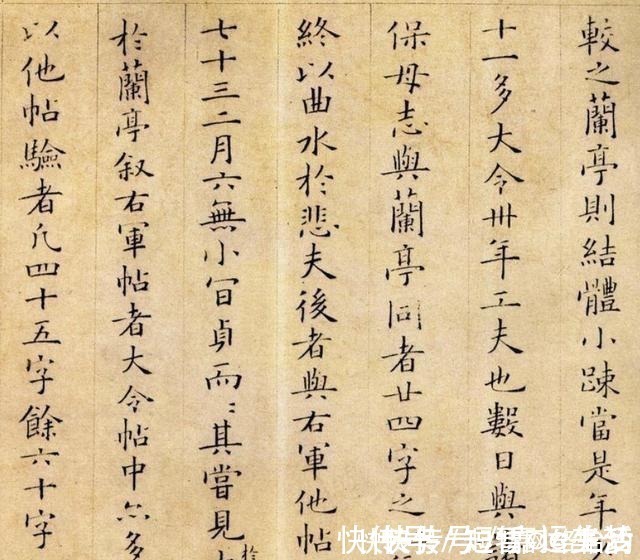 較之蘭亭則結體小踈當是年
十一多大令卅年工夫也數日與
保母志與蘭亭同者廿四字之
終以曲水於悲夫後者與右軍他帖
七十三二月六無小百貞而〻其嘗見
於蘭亭叙右軍帖者大令帖中亦多
以他帖驗者凡四十五字餘六十字